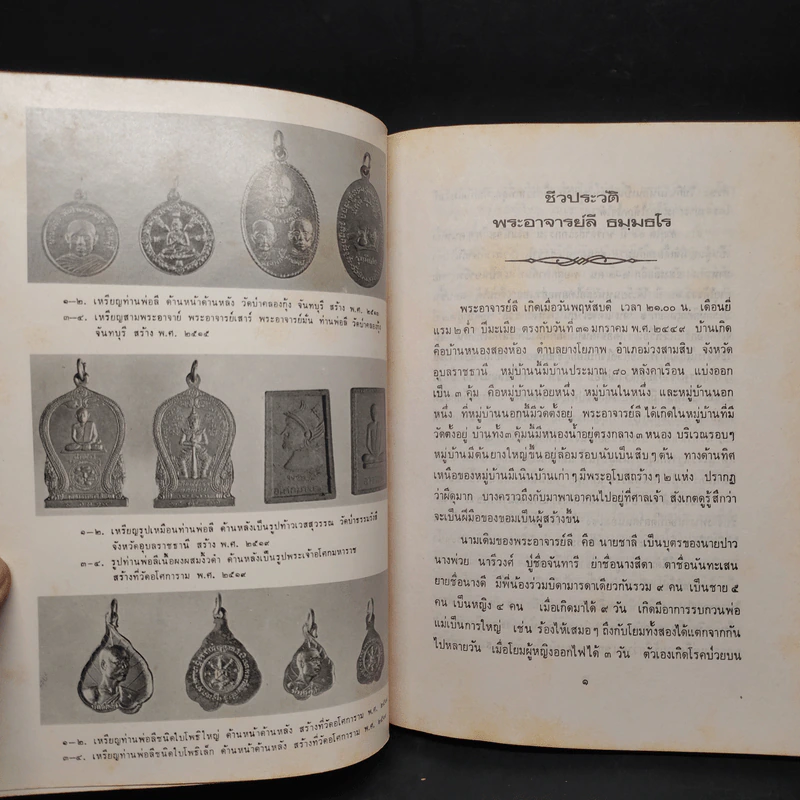 ๑-๒. เหรียญท่านพ่อลี ด้านหน้าด้านหลัง วัดป่าคลองกุ้ง จันทบุรี สร้าง พ.ศ.
๓-๔. เหรียญสามพระอาจารย์ พระอาจารย์เสาร์ พระอาจารย์มั่น ท่านพ่อลี วัดป่าคลองกุ้ง
จันทบุรี สร้าง พ.ศ. ๒๕๑๕
๑-๒. เหรียญรูปเหมือนท่านพ่อลี ด้านหลังเป็นรูปท้าวเวสสุวรรณ
จังหวัดอุบลราชธานี สร้าง พ.ศ. ๒๕๑๙
๓-๔. รูปท่านพ่อลีเนื้อผงผสมงิ้วดำ ด้านหลังเป็นรูปพระเจ้าอโศกมหาราช
สร้างที่วัดอโศการาม พ.ศ. ๒๕๑๙
๑-๒. เหรียญท่านพ่อลีชนิดใบโพธิ์ใหญ่ ด้านหน้าด้านหลัง สร้างที่วัดอโศการาม พ.ศ.
๓-๔. เหรียญท่านพ่อลีชนิดใบโพธิ์เล็ก ด้านหน้าด้านหลัง สร้างที่วัดอโศการาม พ.ศ.
ชีวประวัติ
พระอาจารย์ลี ธมฺมธโร
พระอาจารย์ลี เกิดเมื่อวันพฤหัสบดี เวลา ๒๑.๐๐ น. เดือนยี่
แรม ๒ ค่ำ ปีมะเมีย ตรงกับวันที่ ๓๑ มกราคม พ.ศ. ๒๔๔๙ บ้านเกิด
คือบ้านหนองสองห้อง ตำบลยางโยภาพ อำเภอม่วงสามสิบ จังหวัด
อุบลราชธานี หมู่บ้านนี้มีบ้านประมาณ ๘๐ หลังคาเรือน แบ่งออก
เป็น ๓ คุ้ม คือหมู่บ้านน้อยหนึ่ง หมู่บ้านในหนึ่ง และหมู่บ้านนอก
หนึ่ง ที่หมู่บ้านนอกนี้มีวัดตั้งอยู่ พระอาจารย์ลีได้เกิดในหมู่บ้านที่มี
วัดตั้งอยู่ บ้านทั้ง ๓ คุ้มนี้มีหนองน้ำอยู่ตรงกลาง ๓ หนอง บริเวณรอบๆ
หมู่บ้านมีต้นยางใหญ่ขึ้นอยู่ล้อมรอบนับเป็นสิบๆ ต้น ทางด้านทิศ
เหนือของหมู่บ้านมีเนินบ้านเก่าๆ มีพระอุโบสถร้างๆ ๒ แห่ง ปรากฏ
ว่าผีดุมาก บางคราวถึงกับมาพาเอาคนไปอยู่ที่ศาลเจ้า สังเกตดูรู้สึกว่า
จะเป็นฝีมือของขอมเป็นผู้สร้างขึ้น
นามเดิมของพระอาจารย์ลี คือ นายชาลี เป็นบุตรของนายปาว
นางพ่วย นารีวงศ์ ปู่ชื่อจันทารี ย่าชื่อนางสีดา ตาชื่อนันทะเสน
ยายชื่อนางดี มีพี่น้องร่วมบิดามารดาเดียวกันรวม ๙ คน เป็นชาย ๕
คน เป็นหญิง ๔ คน เมื่อเกิดมาได้ ๙ วัน เกิดมีอาการรบกวนพ่อ
แม่เป็นการใหญ่ เช่น ร้องไห้เสมอๆ ถึงกับโยมทั้งสองได้แตกจากกัน
ไปหลายวัน เมื่อโยมผู้หญิงออกไฟได้ ๓ วัน ตัวเองเกิดโรคป่วยบน
๑